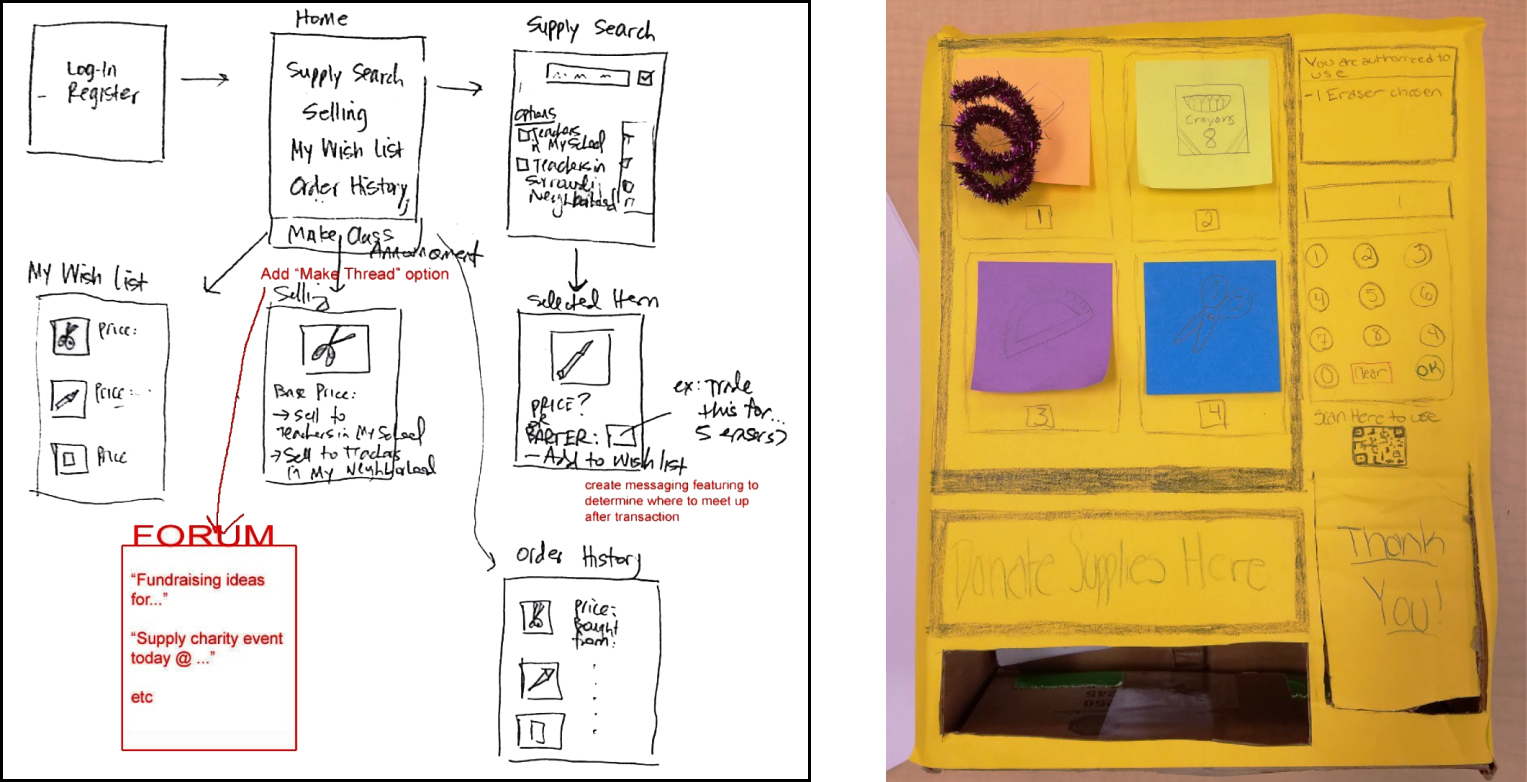 Home
Supply Search
Log-In
- Register
Supply Search
Selling
My Wish list
Order History
Make Class
Announcement
options
Teachers
in My School
Traders in
Neighborhood
My Wish list
Price:
Price:
Price
Add “Make Thread” option
Selling
Base Price:
→ Sell to
Teachers in My School
→ Sell to Traders
in My Neighborhood
Selected Item
PRICE?
or
BARTER:
- Add to Wish list
ex: trade
this for...
5 erasers?
create messaging featuring to
determine where to meet up
after transaction
FORUM
“Fundraising ideas
for...”
“Supply charity event
today @ ...”
etc
Order History
Price:
Bought
from:
You are authorized to
use
-1 Eraser chosen
Crayons
8
1
2
3
4
1 2 3
4 5 6
7 8 9
0 Clear OK
Scan Here to use
Donate Supplies Here
Thank
You!